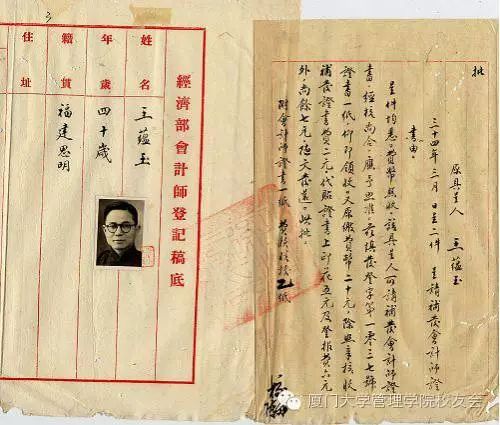 經濟部會計師登記稿底
姓名 王蘊玉
年歲 四十歲
籍貫 福建思明
住址
批
原具呈人 王蘊玉
三十四年三月 日呈二件 呈請補發會計師證
書由。
呈件均悉。費幣照收。該具呈人所請補發會計師證
書,經核尚合,應予照准。茲填發登字第一零三七號
證書一紙,仰即領收。又原繳費幣二十元,除照章核收
補發證書費二元,代貼證書上印花五元及登報費六元
外,尚餘七元,隨文發還。此批。
附會計師證書一紙
厦门大学管理学院校友会